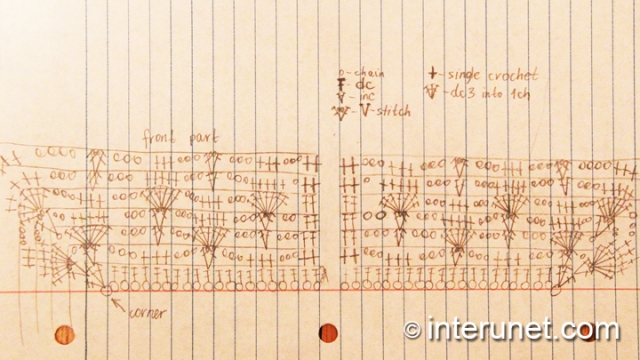 o - chain
dc
inc
V-stitch
single crochet
dc3 into 1ch
front part
corner
© interunet.com